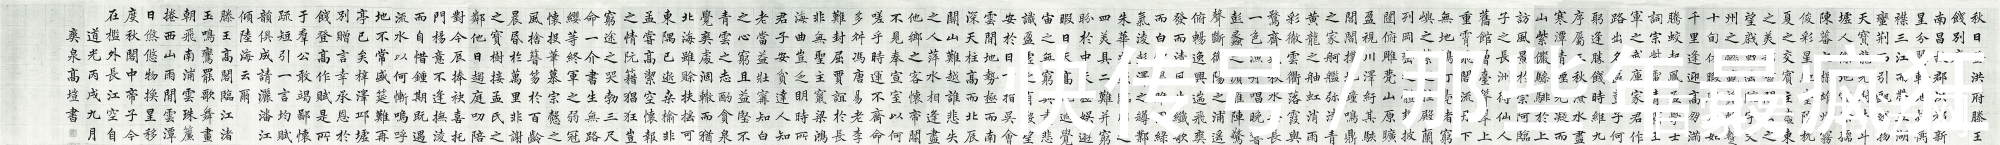 秋日登洪府滕王閣
餞別序
南昌故郡洪都新府
星分翼軫地接衡廬
襟三江而帶五湖控
蠻荊而引甌越物華
天寶龍光射牛斗之
墟人傑地靈徐孺下
陳蕃之榻雄州霧列
俊彩星馳臺隍枕夷
夏之交賓主盡東南
之美都督閻公之雅
望棨戟遙臨宇文新
州之懿範襜帷暫駐
十旬休暇勝友如雲
千里逢迎高朋滿座
騰蛟起鳳孟學士之
詞宗紫電清霜王將
軍之武庫家君作宰
路出名區童子何知
躬逢勝餞時維九月
序屬三秋潦水盡而
寒潭清煙光凝而暮
山紫儼驂騑於上路
訪風景於崇阿臨帝
子之長洲得仙人之
舊館層臺聳翠上出
重霄飛閣流丹下臨
無地鶴汀鳧渚窮島
嶼之縈迴桂殿蘭宮
列岡巒之體勢披繡
闥俯雕甍山原曠其
盈視川澤紆其駭矚
閭閻撲地鐘鳴鼎食
之家舸艦彌津青雀
黃龍之軸虹銷雨霽
彩徹雲衢落霞與孤
鶩齊飛秋水共長天
一色漁舟唱晚響窮
彭蠡之濱雁陣驚寒
聲斷衡陽之浦遙吟
俯暢逸興遄飛爽籟
發而清風生纖歌凝
而白雲遏睢園綠竹
氣凌彭澤之樽鄴水
朱華光照臨川之筆
四美具二難並窮睇
眄於中天極娛遊於
暇日天高地迥覺宇
宙之無窮興盡悲來
識盈虛之有數望長
安於日下指吳會於
雲間地勢極而南溟
深天柱高而北辰遠
關山難越誰悲失路
之人萍水相逢盡是
他鄉之客懷帝閽而
不見奉宣室以何年
嗟乎時運不齊命途
多舛馮唐易老李廣
難封屈賈誼於長沙
非無聖主竄梁鴻於
海曲豈乏明時所賴
君子安貧達人知命
老當益壯寧知白首
之心窮且益堅不墜
青雲之志酌貪泉而
覺爽處涸轍而猶懽
北海雖賒扶搖可接
東隅已逝桑榆非晚
孟嘗高潔空懷報國
之情阮籍猖狂豈效
窮途之哭勃三尺微
命一介書生無路請
纓等終軍之弱冠有
懷投筆慕宗愨之長
風捨簪笏於百齡奉
晨昏於萬里非謝家
之寶樹接孟氏之芳
鄰他日趨庭叨陪鯉
對今晨捧袂喜托龍
門楊意不逢撫凌雲
而自惜鍾期既遇奏
流水以何慚嗚呼勝
地不常盛筵難再蘭
亭已矣梓澤邱墟臨
別贈言幸承恩於偉
餞登高作賦是所望
于群公敢竭鄙懷恭
疏短引一言均賦四
韻俱成請灑潘江各
傾陸海云爾
滕王高閣臨江渚佩
玉鳴鸞罷歌舞畫棟
朝飛南浦雲朱簾暮
捲西山雨閒雲潭影
日悠悠物換星移幾
度秋閣中帝子今何
在檻外長江空自流
道光丙戌九月
爽泉高塏書